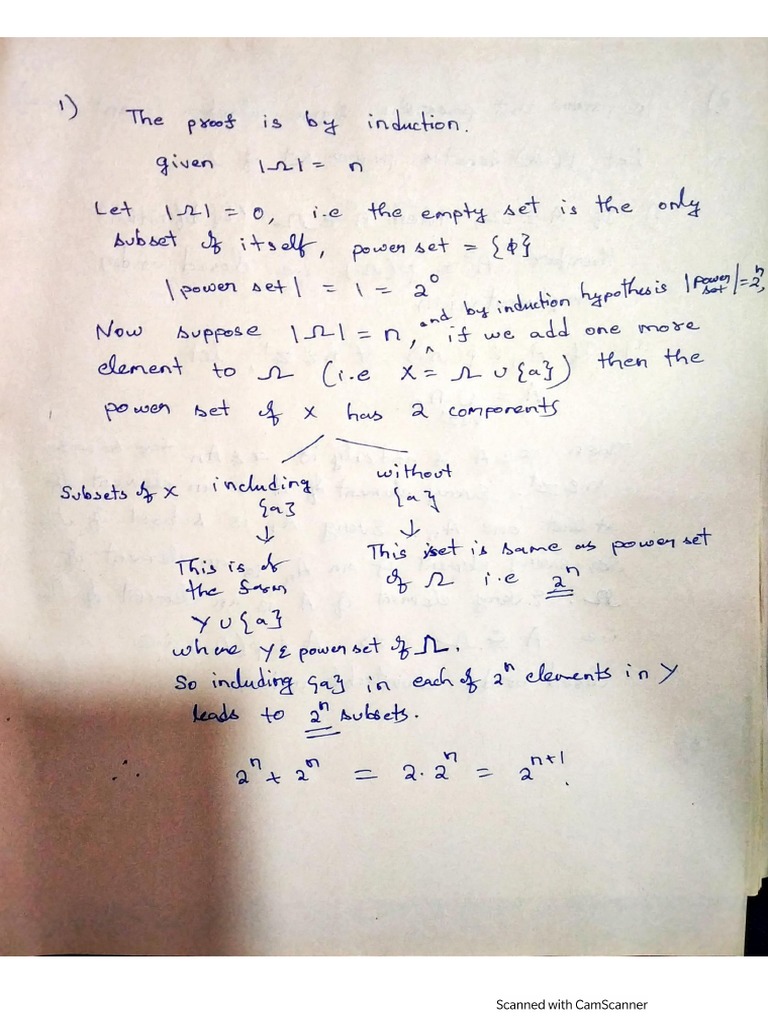 1) The proof is by induction.
given |Ω| = n
Let |Ω| = 0, i.e the empty set is the only
subset of itself, power set = {ϕ}
|power set| = 1 = 2⁰
and by induction hypothesis |power set| = 2ⁿ,
Now suppose |Ω| = n, ^ if we add one more
element to Ω (i.e X = Ω ∪ {a}) then the
power set of X has 2 components
Subsets of X including {a}
↓
This is of
the form
Y ∪ {a}
where Y ε power set of Ω.
So including {a} in each of 2ⁿ elements in Y
leads to 2ⁿ subsets.
without
{a}
↓
This set is same as power set
of Ω i.e 2ⁿ
∴ 2ⁿ + 2ⁿ = 2·2ⁿ = 2ⁿ⁺¹.
Scanned with CamScanner